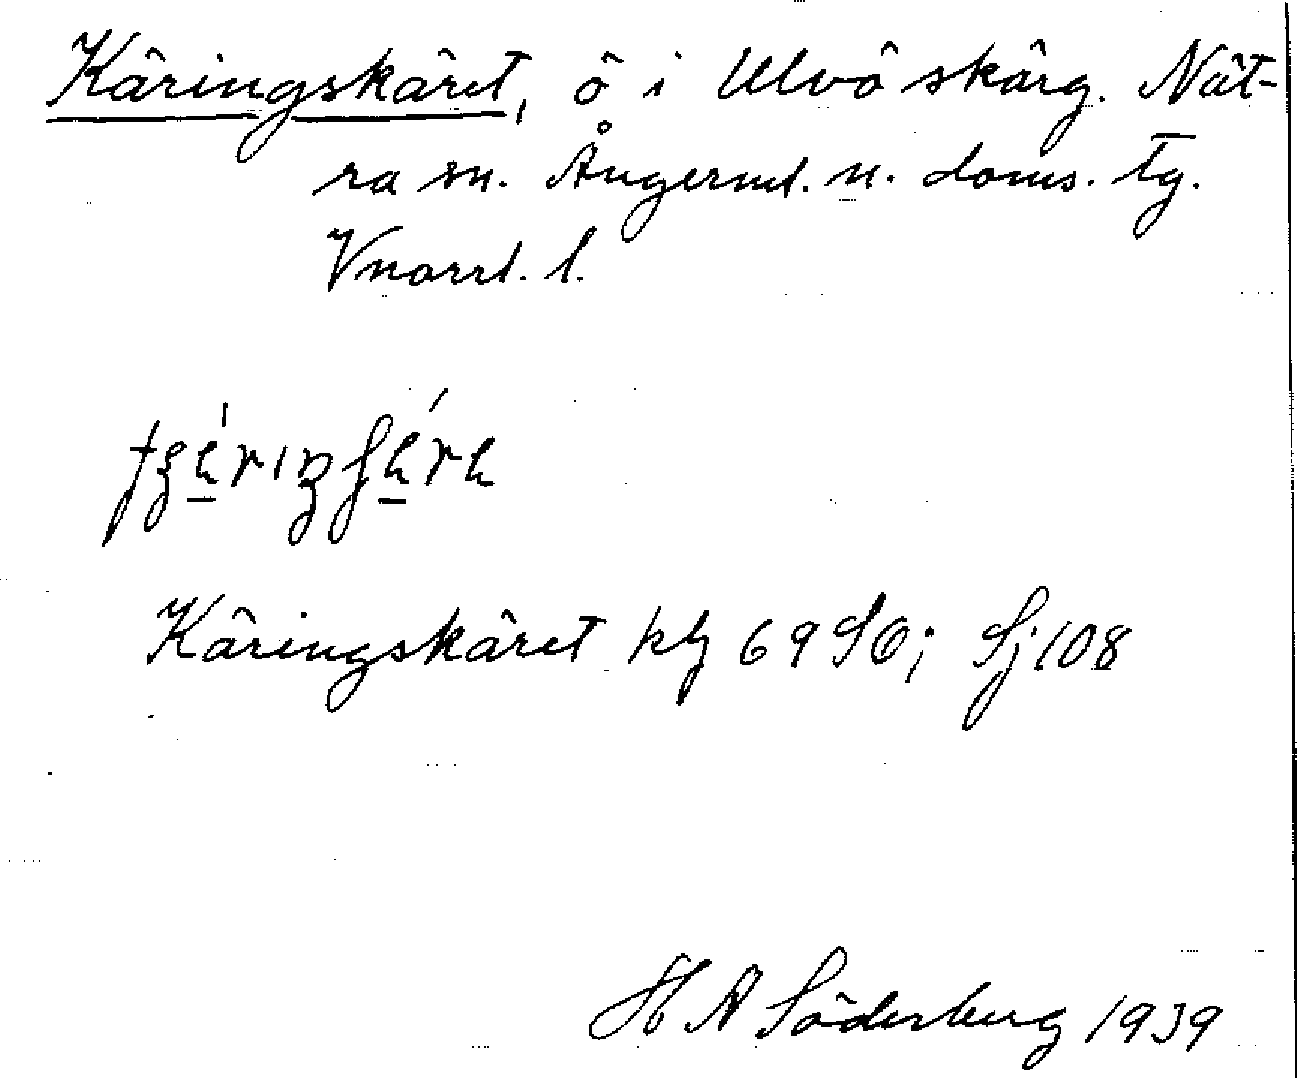 Käringskäret, ö i Ulvö skärg. Nät-
ra sn. Ångerml. n. doms. tg.
Vnorrl. l.
Käringskäret kbl 69 SO; Sj 108
H A Söderberg 1939